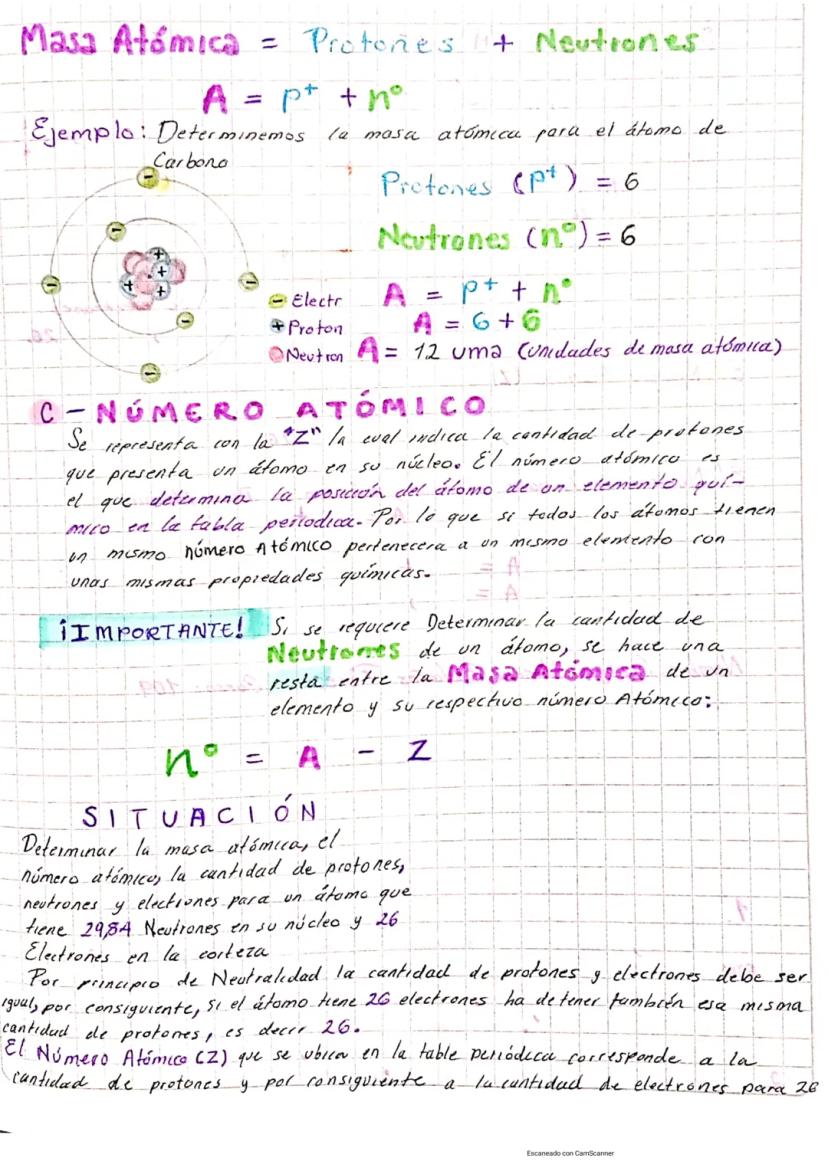 Masa Atómica = Protones + Neutrones
A = p+ + n°
Ejemplo: Determinemos la masa atómica para el átomo de
Carbono
Protones (p+) = 6
Neutrones (n°) = 6
A = p+ + n°
- Electr
A = 6 + 6
+ Proton
Neutron
A = 12 uma (unidades de masa atómica)
C - NÚMERO ATÓMICO
Se representa con la "Z" la cual indica la cantidad de protones
que presenta un átomo en su núcleo. El número atómico es
el que determina la posición del átomo de un elemento quí-
mico en la tabla periodica. Por lo que si todos los átomos tienen
un mismo número Atómico pertenecera a un mismo elemento con
unas mismas propiedades químicas.
¡IMPORTANTE! Si se requiere Determinar la cantidad de
Neutrones de un átomo, se hace una
resta entre la Masa Atómica de un
elemento y su respectivo número Atómico:
n° = A - Z
SITUACIÓN
Determinar la masa atómica, el
número atómico, la cantidad de protones,
neutrones y electrones para un átomo que
tiene 29,84 Neutrones en su núcleo y 26
Electrones en la corteza
Por principio de Neutralidad la cantidad de protones y electrones debe ser
igual, por consiguiente, si el átomo tiene 26 electrones ha de tener también esa misma
cantidad de protones, es decir 26.
El Número Atómico (Z) que se ubica en la table periódica corresponde a la
cantidad de protones y por consiguiente a la cantidad de electrones para 26
Escaneado con CamScanner